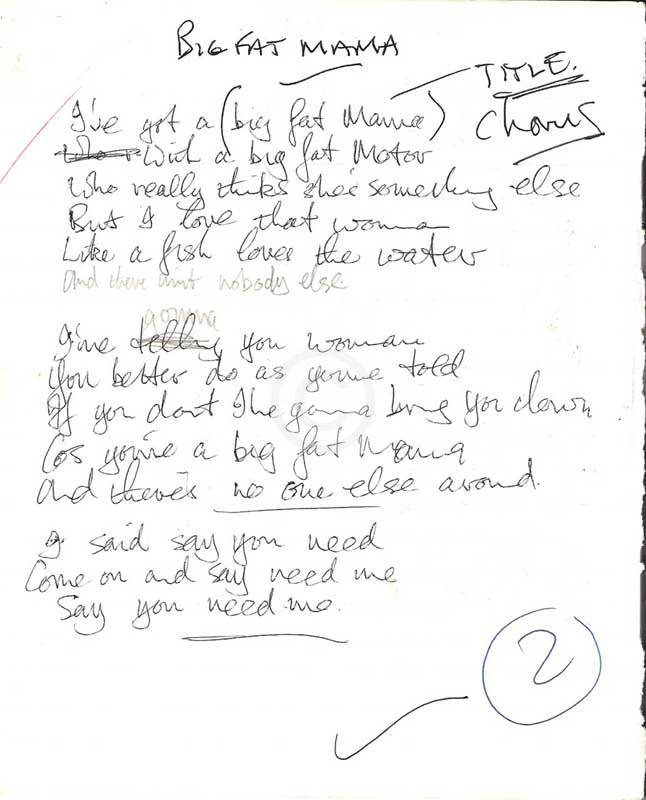 BIG FAT MAMA
TITLE.
I've got a (big fat Mama) Chorus
Who With a big fat Motor
Who really thinks she's something else
But I love that woman
Like a fish loves the water
and there aint nobody else.
gonna
I'me telling you woman
You better do as youre told
If you dont I'me gonna bring you down
Cos you're a big fat Mama
And there's no one else around.
I said say you need
Come on and say need me
Say you need me.
2
©